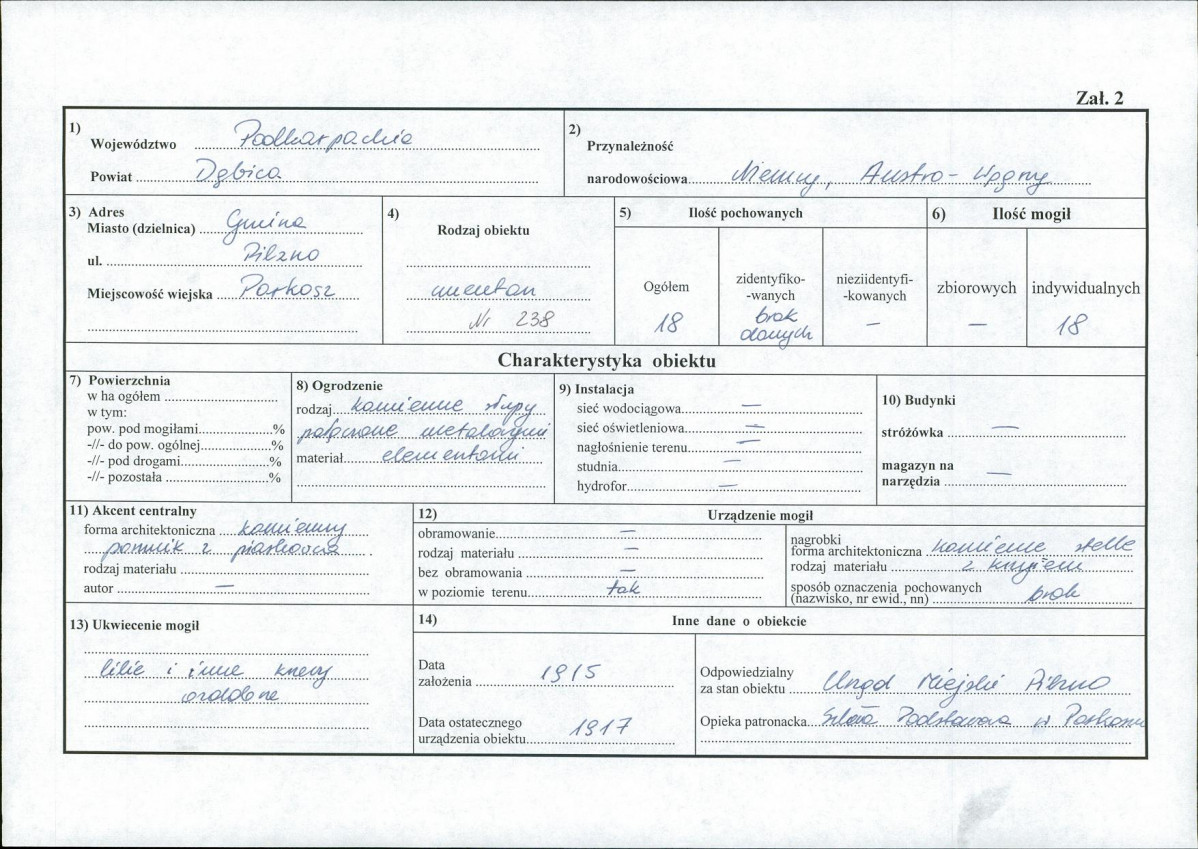 Zał. 2
1)
Województwo Podkarpackie
Powiat Dębica
2)
Przynależność
narodowościowa Niemcy, Austro-Węgry
3) Adres
Miasto (dzielnica) Gmina
ul. Pilzno
Miejscowość wiejska Parkosz
4)
Rodzaj obiektu
cmentarz
Nr 238
5) Ilość pochowanych
Ogółem
18
zidentyfiko-
-wanych
brak
danych
nieziidentyfi-
-kowanych
—
6) Ilość mogił
zbiorowych
—
indywidualnych
18
Charakterystyka obiektu
7) Powierzchnia
w ha ogółem
w tym:
pow. pod mogiłami %
-//- do pow. ogólnej %
-//- pod drogami %
-//- pozostała %
8) Ogrodzenie
rodzaj kamienne słupy
połączone metalowymi
materiał elementami
9) Instalacja
sieć wodociągowa —
sieć oświetleniowa —
nagłośnienie terenu —
studnia —
hydrofor —
10) Budynki
stróżówka —
magazyn na
narzędzia —
11) Akcent centralny
forma architektoniczna kamienny
pomnik z piaskowca
rodzaj materiału
autor —
12) Urządzenie mogił
obramowanie —
rodzaj materiału —
bez obramowania —
w poziomie terenu tak
nagrobki
forma architektoniczna kamienne stelle
rodzaj materiału z krzyżem
sposób oznaczenia pochowanych
(nazwisko, nr ewid., nn) brak
13) Ukwiecenie mogił
lilie i inne krzewy
ozdobne
14) Inne dane o obiekcie
Data
założenia 1915
Data ostatecznego
urządzenia obiektu 1917
Odpowiedzialny
za stan obiektu Urząd Miejski Pilzno
Opieka patronacka Szkoła Podstawowa w Parkoszu